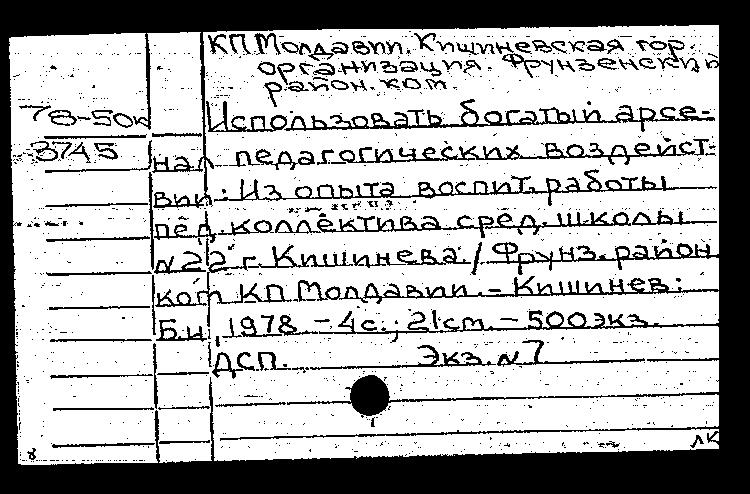 КП Молдавии. Кишиневская гор.
организация. Фрунзенский
район. ком.
78-50к Использовать богатый арсе-
3745 нал педагогических воздейст-
вий: Из опыта воспит. работы
пед. коллектива сред. школы
№22 г. Кишинева. / Фрунз. район.
ком КП Молдавии. - Кишинев:
Б.и, 1978. - 4с.; 21см. - 500экз.
ДСП. Экз. №7
лк
8